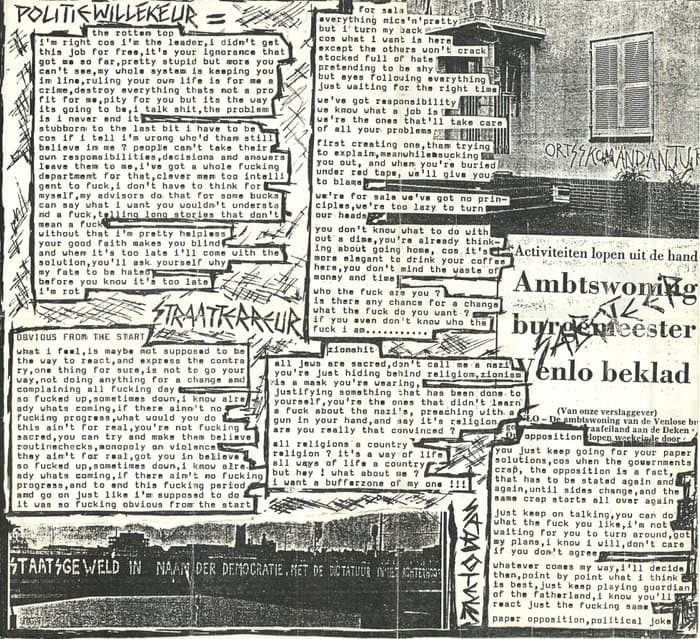 POLITIEWILLEKEUR =
the rotten top
i'm right cos i'm the leader,i didn't get
this job for free,it's your ignorance that
got me so far,pretty stupid but more you
can't see,my whole system is keeping you
im line,ruling your own life is for me a
crime,destroy everything thats not a pro
fit for me,pity for you but its the way
its going to be,i talk shit,the problem
is i never end it
stuborn to the last bit i have to be
cos if i tell i'm wrong who'd tham still
believe im me ? people cam't take their
own responsibilities,decisions and answers
leave them to me,i've got a whole fucking
department for that,clever mem too intelli
gent to fuck,i don't have to think for
myself,my advisors do that for some bucks
can say what i want you wouldn't understa
nd a fuck,telling long stories that don't
mean a fuck
without that i'm pretty helpless
your good faith makes you blind
and whem it's too late i'll come with the
solution,you'll ask yourself why
my fate to be hated
before you know it's too late
i'm rot
for sale
everything mics'n'pretty
but i turn my back
cos what i want is here
except the others won't crack
stocked full of hate
pretending to be shy
but eyes following everything
just waiting for the right time
we've got responsibility
we know what a job is
we're the ones that'll take care
of all your problems
first creating one,tham trying
to explaim,meanwhile sucking
you out, and when you're buried
under red tape, we'll give you
to blame
we're for sale we've got no prin-
ciples,we're too lazy to turn
our heads
you don't know what to do with
out a dime,you're already think-
ing about going home, cos it's
more elegant to drink your coffee
here,you don't mind the waste of
money and time
who the fuck are you ?
is there any chance for a change
what the fuck do you want ?
if you even don't know who the
fuck i am.........
ORTSSKOMANDANTUR
Activiteiten lopen uit de hand
Ambtswoning
burgemeester
Venlo beklad
(Van onze verslaggever)
De ambtswoning van de Venlose
STRAATTERREUR
OBVIOUS FROM THE START
what i feel,is maybe not supposed to be
the way to react,and express the contra
ry,one thing for sure,is not to go your
way,not doing anything for a change and
complaining all fucking day
so fucked up,sometimes down,i know alre
ady whats coming,if there ain't no
fucking progress,what would you do
this ain't for real,you're not fucking
sacred,you can try and make them believe
routinechecks,monopoly on violance
they ain't for real,got you in believe
so fucked up,sometimes down,i know alre
ady whats coming,if there aim't no fucking
progress,and to end this fucking period
and go on just like i'm supposed to do
it was so fucking obvious from the start
zionshit
all jews are sacred,don't call me a nazi
you're just hiding behind religiom,zionism
is a mask you're wearing,
justifying something that has been done to
yourself,you're the ones that didn't learn
a fuck about the nazi's, preaching with a
gun in your hand,and say it's religion
are you really that convinced ?
all religions a country
religion ? it's a way of life
all ways of life a country
but hey ! what about me ?
i want a bufferzone of my one !!!
opposition
you just keep going for your paper
solutions,cos when the government
crap, the opposition is a fact,
that has to be stated again and
again,until sides change,and the
same crap starts all over again
just keep on talking,you can do
what the fuck you like,i'm not
waiting for you to turn around,got
my plans,i know i will,don't care
if you don't agree
whatever comes my way,i'll decide
them,point by point what i think
is best,just keep playing guardian
of the fatherland,i know you'll
react just the fucking same
paper opposition,political joke
SABOTEER
STAATSGEWELD IN NAAM DER DEMOCRATIE, MET DE DICTATUUR IN HET ACHTERHOOFD